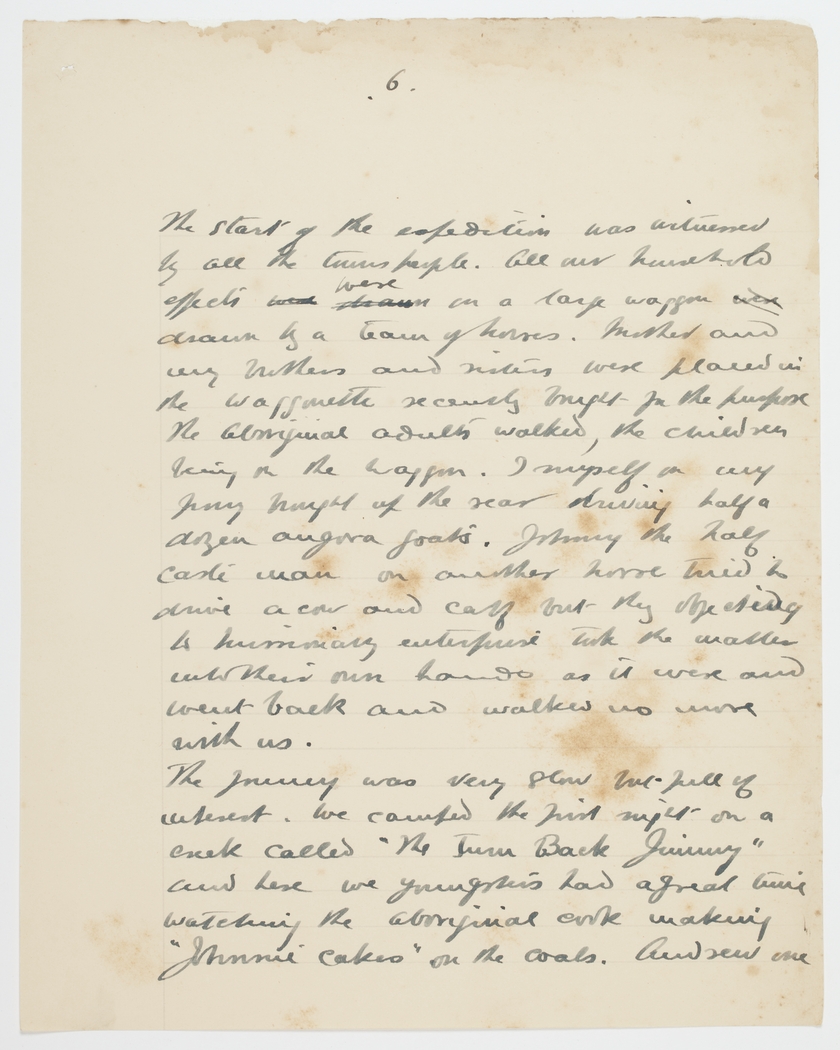 . 6 .
The start of the expedition was witnessed
by all the townspeople. All our household
were
effects were drawn on a large waggon were
drawn by a team of horses. Mother and
my brothers and sisters were placed in
the waggonette recently bought for the purpose
the aboriginal adults walked, the children
being on the waggon. I myself on my
pony brought up the rear driving half a
dozen angora goats. Johnny the half
caste man on another horse tried to
drive a cow and calf but they objecting
to missionary enterprise took the matter
into their own hands as it were and
went back and walked no more
with us.
The journey was very slow but full of
interest. We camped the first night on a
creek called "The Turn Back Jimmy"
and here we youngsters had a great time
watching the aboriginal cook making
"Johnnie cakes" on the coals. Andrew one